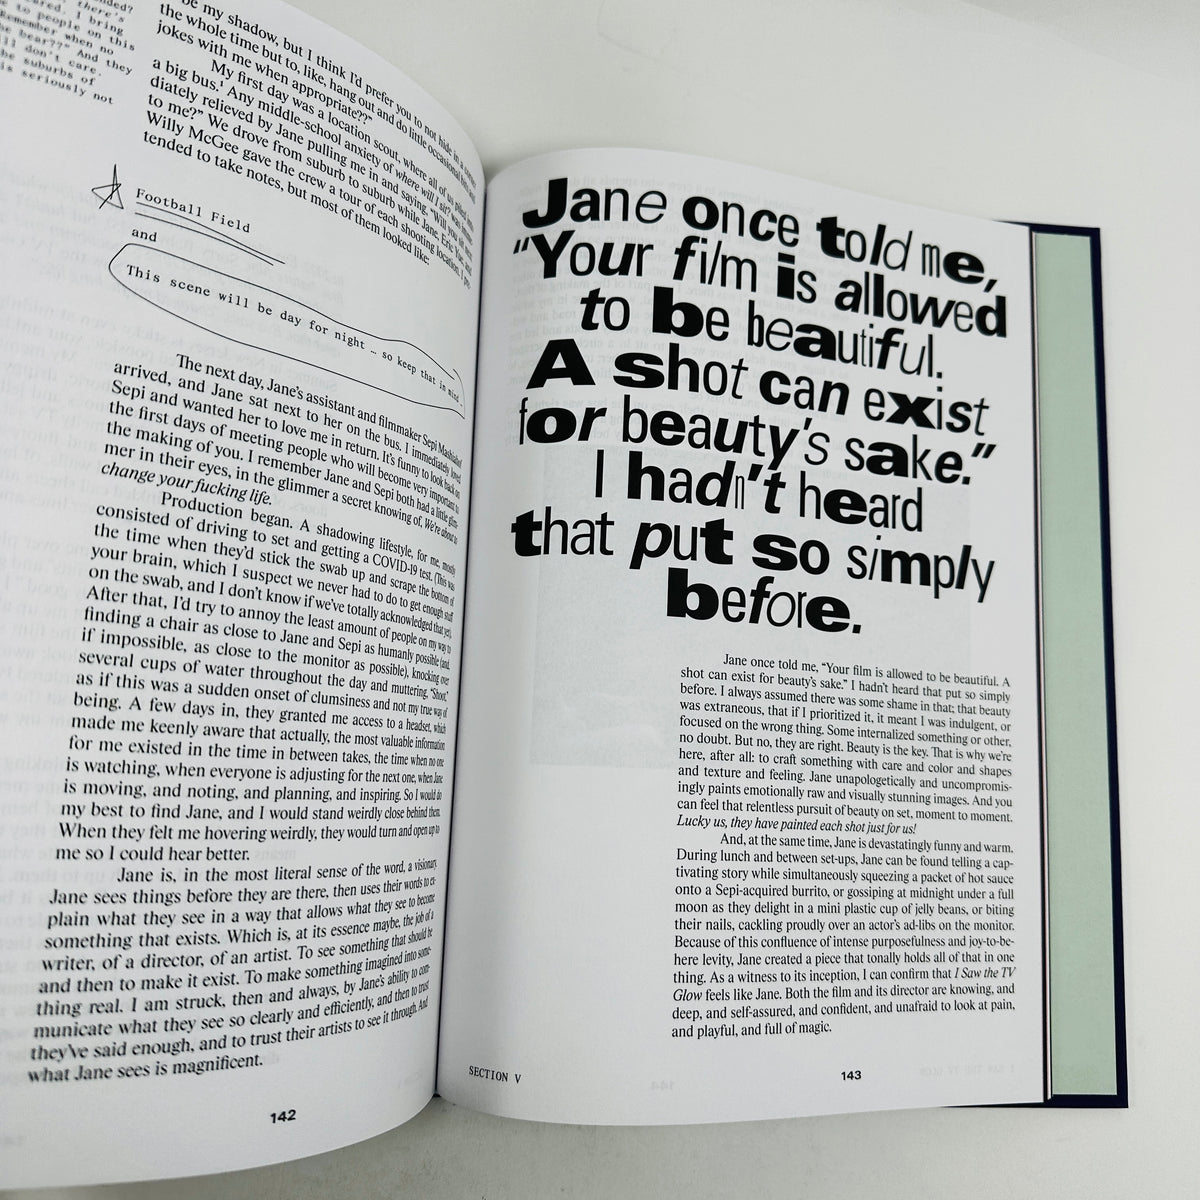 nded?
there's
ared. I bring
to people on this
Remember when no
he bear??" And they
ll don't care.
he suburbs of
is seriously not
be my shadow, but I think I'd prefer you to not hide in a corner
the whole time but to, like, hang out and do little occasional bits and
jokes with me when appropriate??"
My first day was a location scout, where all of us piled into
a big bus.¹ Any middle-school anxiety of where will I sit? was imme-
diately relieved by Jane pulling me in and saying, "Will you sit next
to me?" We drove from suburb to suburb while Jane, Eric Yue, and
Willy McGee gave the crew a tour of each shooting location. I pre-
tended to take notes, but most of them looked like:
Football Field
and
This scene will be day for night … so keep that in mind …
The next day, Jane's assistant and filmmaker Sepi Mashiahof
arrived, and Jane sat next to her on the bus. I immediately loved
Sepi and wanted her to love me in return. It's funny to look back on
the first days of meeting people who will become very important to
the making of you. I remember Jane and Sepi both had a little glim-
mer in their eyes, in the glimmer a secret knowing of, We're about to
change your fucking life.
Production began. A shadowing lifestyle, for me, mostly
consisted of driving to set and getting a COVID-19 test. (This was
the time when they'd stick the swab up and scrape the bottom of
your brain, which I suspect we never had to do to get enough stuff
on the swab, and I don't know if we've totally acknowledged that yet).
After that, I'd try to annoy the least amount of people on my way to
finding a chair as close to Jane and Sepi as humanly possible (and,
if impossible, as close to the monitor as possible), knocking over
several cups of water throughout the day and muttering, "Shoot,"
as if this was a sudden onset of clumsiness and not my true way of
being. A few days in, they granted me access to a headset, which
made me keenly aware that actually, the most valuable information
for me existed in the time in between takes, the time when no one
is watching, when everyone is adjusting for the next one, when Jane
is moving, and noting, and planning, and inspiring. So I would do
my best to find Jane, and I would stand weirdly close behind them.
When they felt me hovering weirdly, they would turn and open up to
me so I could hear better.
Jane is, in the most literal sense of the word, a visionary.
Jane sees things before they are there, then uses their words to ex-
plain what they see in a way that allows what they see to become
something that exists. Which is, at its essence maybe, the job of a
writer, of a director, of an artist. To see something that should be
and then to make it exist. To make something imagined into some-
thing real. I am struck, then and always, by Jane's ability to com-
municate what they see so clearly and efficiently, and then to trust
they've said enough, and to trust their artists to see it through. And
what Jane sees is magnificent.
142
Jane once told me,
"Your film is allowed
to be beautiful.
A shot can exist
for beauty's sake."
I hadn't heard
that put so simply
before.
Jane once told me, "Your film is allowed to be beautiful. A
shot can exist for beauty's sake." I hadn't heard that put so simply
before. I always assumed there was some shame in that; that beauty
was extraneous, that if I prioritized it, it meant I was indulgent, or
focused on the wrong thing. Some internalized something or other,
no doubt. But no, they are right. Beauty is the key. That is why we're
here, after all: to craft something with care and color and shapes
and texture and feeling. Jane unapologetically and uncompromis-
ingly paints emotionally raw and visually stunning images. And you
can feel that relentless pursuit of beauty on set, moment to moment.
Lucky us, they have painted each shot just for us!
And, at the same time, Jane is devastatingly funny and warm.
During lunch and between set-ups, Jane can be found telling a cap-
tivating story while simultaneously squeezing a packet of hot sauce
onto a Sepi-acquired burrito, or gossiping at midnight under a full
moon as they delight in a mini plastic cup of jelly beans, or biting
their nails, cackling proudly over an actor's ad-libs on the monitor.
Because of this confluence of intense purposefulness and joy-to-be-
here levity, Jane created a piece that tonally holds all of that in one
thing. As a witness to its inception, I can confirm that I Saw the TV
Glow feels like Jane. Both the film and its director are knowing, and
deep, and self-assured, and confident, and unafraid to look at pain,
and playful, and full of magic.
SECTION V
143